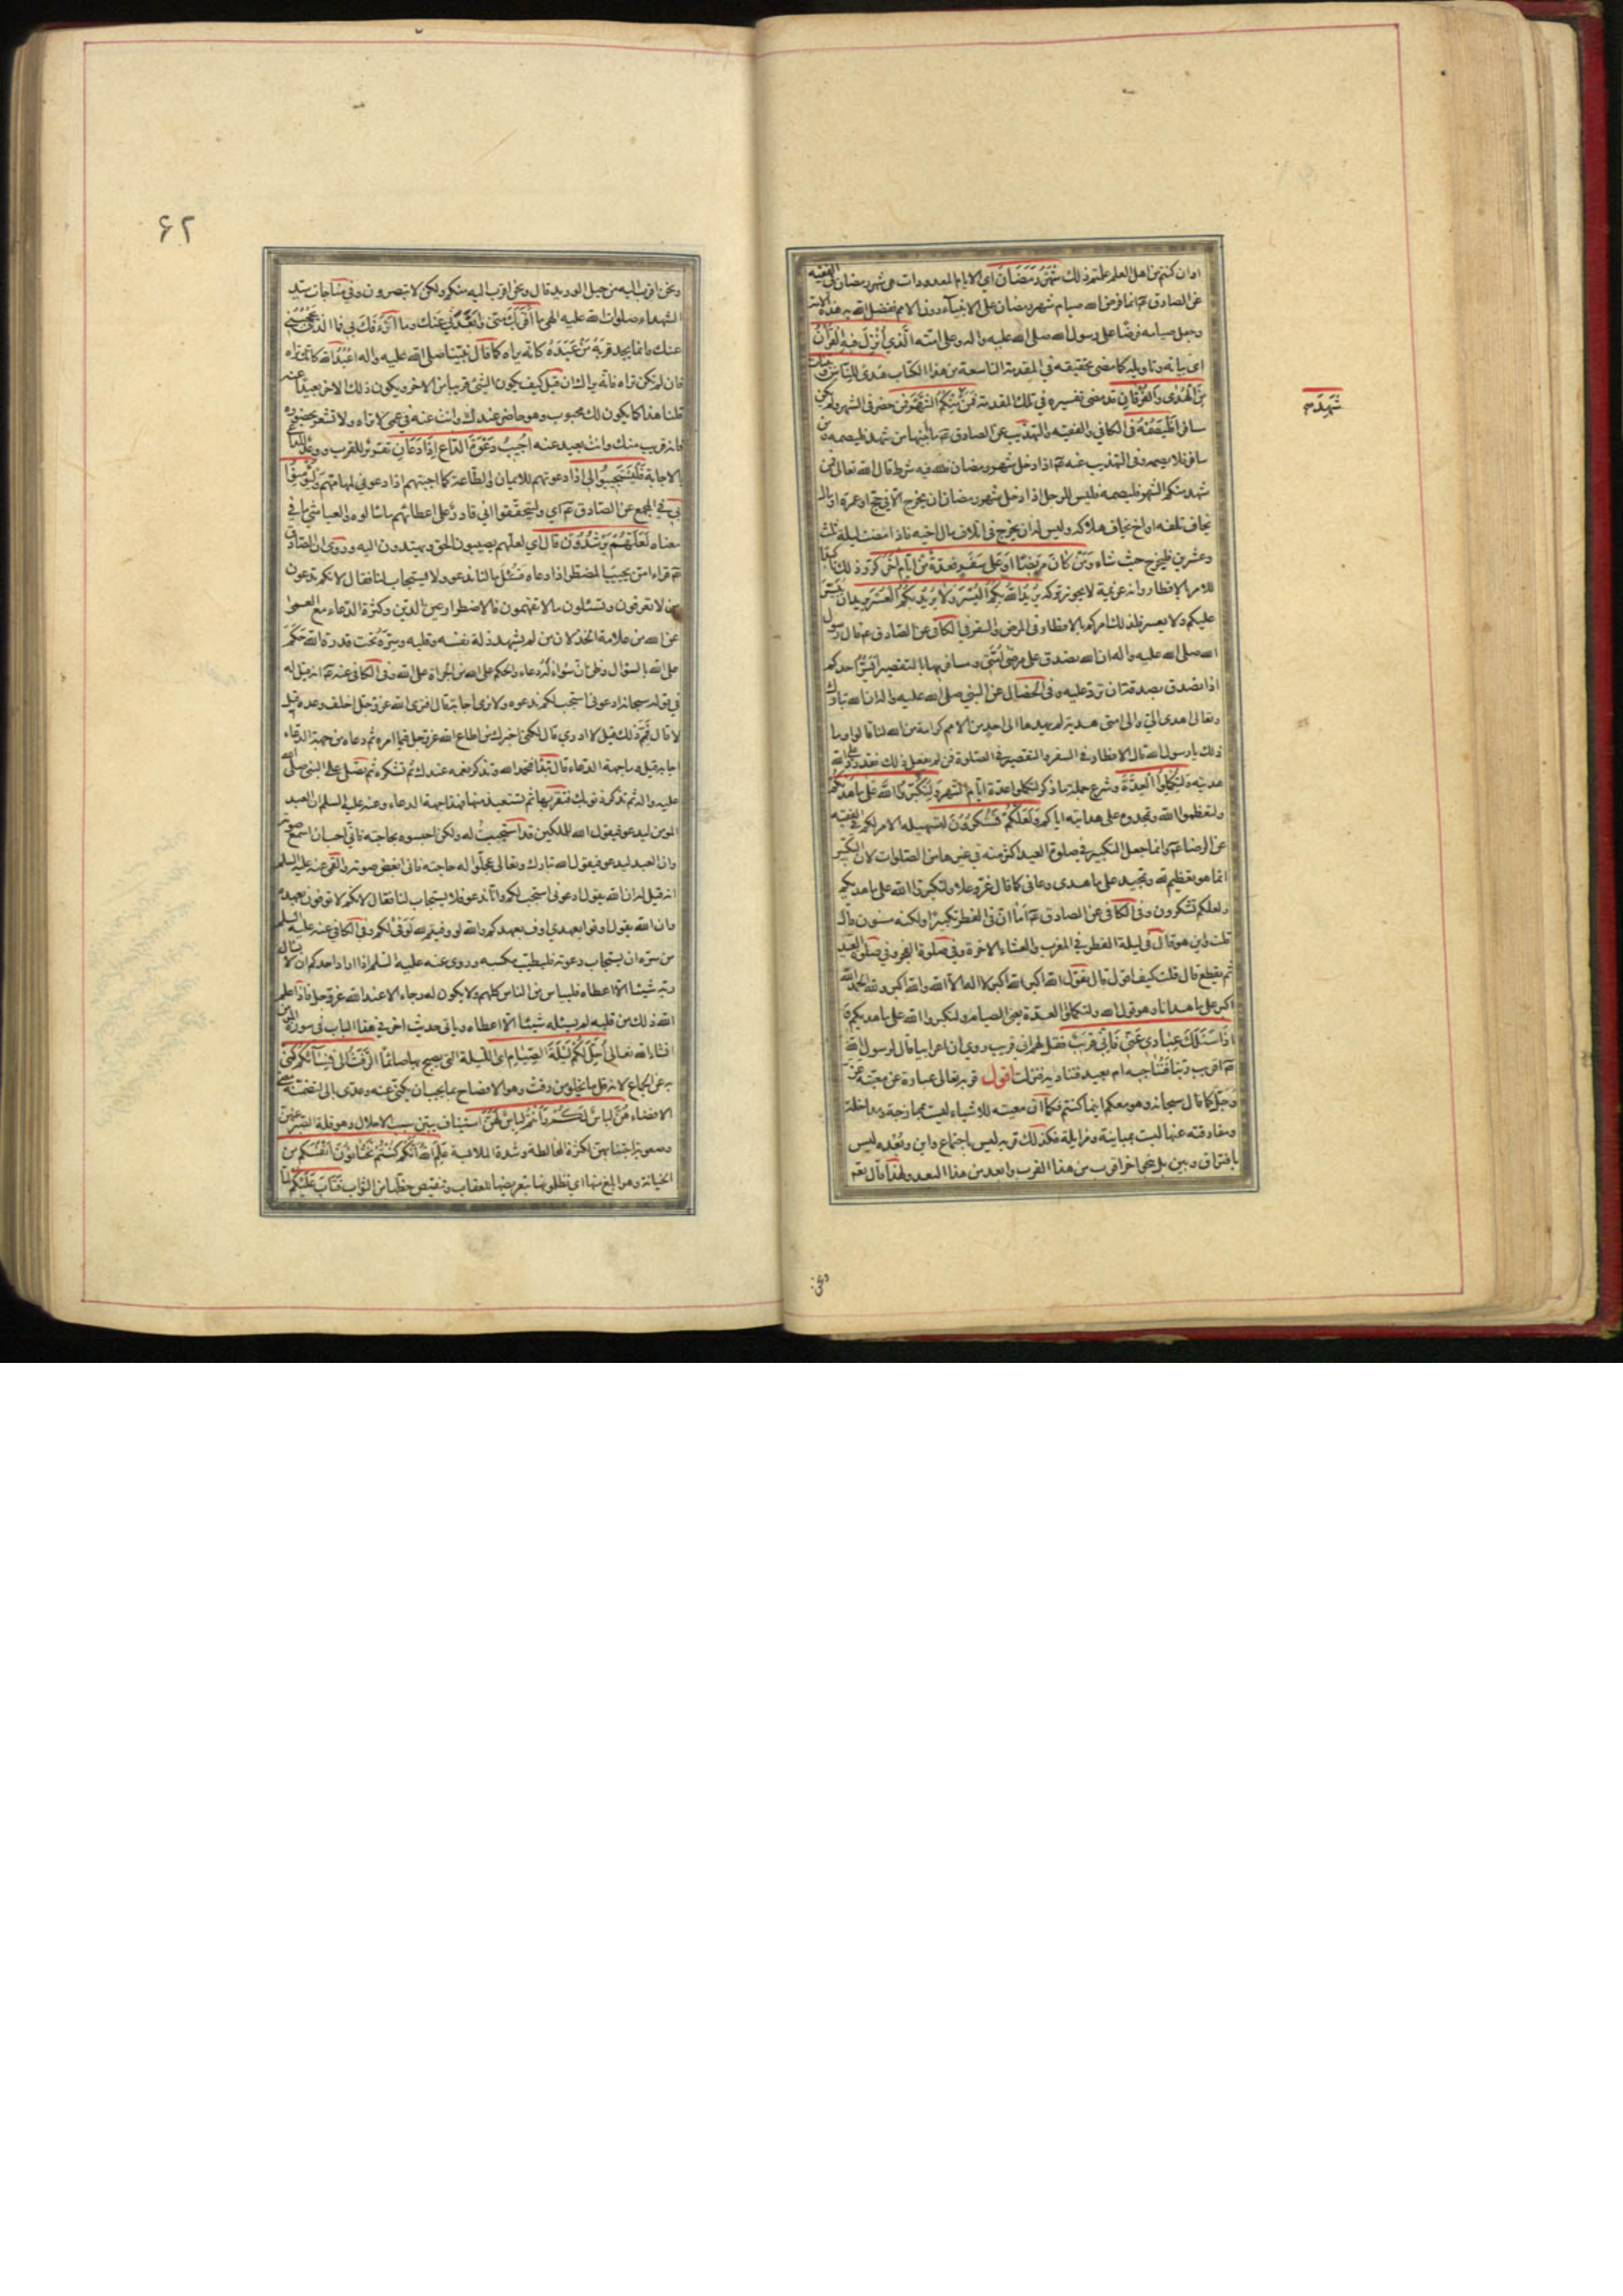 او ان كنتم من اهل العلم علمتم ذلك شَهْرُ رَمَضَانَ اي الايام المعدودات هي شهر رمضان في الفقيه
عن الصادق عم انما فرض الله صيام شهر رمضان على الانبياء دون الامم ففضل الله به هذه الامة
وجعل صيامه فرضا على رسول الله صلى الله عليه واله وعلى امته الَّذي اُنْزِلَ فيهِ الْقُرْانُ
اي بيانه وتاويله كما مضى تحقيقه في المقدمة التاسعة من هذا الكتاب هُدىً لِلنّاسِ وَبَيِّنَاتٍ
مِنَ الْهُدىٰ وَالْفُرْقَانِ قد مضى تفسيره في تلك المقدمة فَمَنْ شَهِدَ مِنْكُمُ الشَّهْرَ فمن حضر في الشهر ولم يكن
شَهِدَ
مسافرا فَلْيَصُمْهُ في الكافي والفقيه والتهذيب عن الصادق عم ما ابينها من شهد فليصمه ومن
سافر فلا يصمه وفي التهذيب عنه عم اذا دخل شهر رمضان فلله فيه شرط قال الله تعالى فمن
شهد منكم الشهر فليصمه فليس للرجل اذا دخل شهر رمضان ان يخرج الا في حج او عمرة او مال
يخاف تلفه او اخ يخاف هلاكه وليس له ان يخرج في اتلاف مال اخيه فاذا مضت ليلة ثلث
وعشرين فليخرج حيث شاء وَمَنْ كَانَ مَرِيضًا اَوْ عَلى سَفَرٍ فَعِدَّةٌ مِنْ اَيّامٍ اُخَرَ كرر ذلك تاكيدا
للامر بالافطار وانه عزيمة لا يجوز تركه يُرِيدُ اللهُ بِكُمُ الْيُسْرَ وَلا يُرِيدُ بِكُمُ الْعُسْرَ يريد ان ييسر
عليكم ولا يعسر فلذلك امركم بالافطار في المرض والسفر في الكافي عن الصادق عم قال رسول
الله صلى الله عليه واله ان الله تصدق على مرضى امتي ومسافريها بالتقصير ايسر احدكم
اذا تصدق بصدقة ان ترد عليه وفي الخصال عن النبي صلى الله عليه واله ان الله تبارك
وتعالى اهدى الي والى امتي هدية لم يهدها الى احد من الامم كرامة من الله لنا قالوا وما
ذلك يا رسول الله قال الافطار في السفر والتقصير في الصلوة فمن لم يفعل ذلك فقد رد على الله
هديته وَلِتُكْمِلُوا الْعِدَّةَ وشرع جملة ما ذكر لتكملوا عدة ايام الشهر وَلِتُكَبِّرُوا اللهَ عَلى ما هَدٰيكُمْ
ولتعظموا الله وتمجدوه على هدايته اياكم وَلَعَلَّكُمْ تَشْكُرُونَ لتسهيله الامر لكم في الفقيه
عن الرضا عم وانما جعل التكبير في صلوة العيد اكثر منه في غيرها من الصلوات لان التكبير
انما هو تعظيم لله وتمجيد على ما هدى وعافى كما قال عز وعلا ولتكبروا الله على ما هديكم
ولعلكم تشكرون وفي الكافي عن الصادق عم اما ان في الفطر تكبيرا ولكنه مسنون قال
قلت واين هو قال في ليلة الفطر في المغرب والعشاء الاخرة وفي صلوة الفجر وفي صلوة العيد
ثم يقطع قال قلت كيف اقول قال تقول الله اكبر الله اكبر لا اله الا الله والله اكبر ولله الحمد الله
اكبر على ما هدانا وهو قول الله ولتكملوا العدة يعني الصيام ولتكبروا الله على ما هديكم وَ
اِذَا سَئَلَكَ عِبادي عَنّي فَاِنّي قَرِيبٌ فقل لهم اني قريب روي ان اعرابيا قال لرسول الله
ص اقريب ربنا فنناجيه ام بعيد فنناديه فنزلت اقول قربه تعالى عبارة عن معيته عز
وجل كما قال سبحانه وهو معكم اينما كنتم فكما ان معيته للاشياء ليست بممازجة ومداخلة
ومفارقته عنها ليست بمباينة ومزايلة فكذلك قربه ليس باجتماع واين وبعده ليس
بافتراق وبين بل بنحو اخر اقرب من هذا القرب وابعد من هذا البعد ولهذا قال تعم
ونحن
٦٢
ونحن اقرب اليه من حبل الوريد قال ونحن اقرب اليه منكم ولكن لا تبصرون وفي مناجات سيد
الشهداء صلوات الله عليه الهي ما اَقْرَبَكَ مني وَاَبْعَدَني عَنك وما اَرْأَفَكَ بي فما الذي يحجبني
عنك وانما يجد قربه مَنْ عَبَدَهُ كانه يراه كما قال نبينا صلى الله عليه واله اعْبُدِ الله كانك تراه
فان لم تكن تراه فانه يراك ان قيل كيف يكون الشيئ قريبا من الاخر ويكون ذلك الاخر بعيدا عنه
قلنا هذا كما يكون لك محبوب وهو حاضر عندك وانت عنه في عمى لا تراه ولا تشعر بحضوره
فانه قريب منك وانت بعيد عنه اُجيبُ دَعْوَةَ الدّاعِ اِذَا دَعَانِ تقرير للقرب ووعد للداعي
بالاجابة فَلْيَسْتَجيبُوا لي اذا دعوتهم للايمان والطاعة كما اجبتهم اذا دعوني لمهامتهم وَلْيُؤْمِنُوا
بي في المجمع عن الصادق عم اي وليتحققوا اني قادر على اعطائهم ما سالوه والعياشي ما في
معناه لَعَلَّهُمْ يَرْشُدُونَ قال اي لعلهم يصيبون الحق ويهتدون اليه وروي ان الصادق
عم قراء امن يجيب المضطر اذا دعاه فسُئل ما لنا ندعو ولا يستجاب لنا فقال لانكم تدعون
من لا تعرفون وتسئلون ما لا تفهمون فالاضطرار عين الدين وكثرة الدعاء مع العمى
عن الله من علامة الخذلان من لم يشهد ذلة نفسه وقلبه وسره تحت قدرة الله حَكَمَ
على الله بالسؤال وظن ان سؤاله دعاء والحكم على الله من الجرأة على الله وفي الكافي عنه عم انه قيل له
في قوله سبحانه ادعوني استجب لكم ندعوه ولا نرى اجابة قال افترى الله عز وجل اخلف وعده قيل
لا قال فمم ذلك قيل لا ادري قال لكني اخبرك من اطاع الله عز وجل فيما امره ثم دعاه من جهة الدعاء
اجابه قيل وما جهة الدعاء قال تبدأ فتحمد الله وتذكر نعمه عندك ثم تشكره ثم تصلي على النبي صلى الله
عليه واله ثم تذكر ذنوبك فتقر بها ثم تستعيذ منها فهذا جهة الدعاء وعنه عليه السلم ان العبد
المومن ليدعو فيقول الله للملكين قد استجبت له ولكن احبسوه بحاجته فاني احب ان اسمع صوته
وان العبد ليدعو فيقول الله تبارك وتعالى عجلوا له حاجته فاني ابغض صوته والقمي عنه عليه السلم
انه قيل له ان الله يقول ادعوني استجب لكم وانا ندعو فلا يستجاب لنا فقال لانكم لا توفون بعهده
وان الله يقول اوفوا بعهدي اوف بعهدكم والله لو وفيتم لله لَوَفى لكم وفي الكافي عنه عليه السلم
من سره ان يستجاب دعوته فليطيب مكسبه وروي عنه عليه السلم اذا اراد احدكم ان لا يسال
ربه شيئا الا اعطاه فليياس من الناس كلهم ولا يكون له رجاء الا عند الله عز وجل فاذا علم
الله ذلك من قلبه لم يسئله شيئا الا اعطاه وياتي حديث اخر في هذا الباب في سورة المومن
انشاء الله تعالى اُحِلَّ لَكُمْ لَيْلَةَ الصِّيَامِ اي الليلة التي يصبح بها صائما الرَّفَثُ اِلى نِسَآئِكُمْ كنى
به عن الجماع لانه قل ما يخلو من رفث وهو الافصاح بما يجب ان يكنى عنه وعدي بالى لتضمنه معنى
الافضاء هُنَّ لِباسٌ لَكُمْ وَاَنْتُمْ لِباسٌ لَهُنَّ استيناف يبين سبب الاحلال وهو قلة الصبر عنهن
وصعوبة اجتنابهن لكثرة المخالطة وشدة الملابسة عَلِمَ اللهُ اَنَّكُمْ كُنْتُمْ تَخْتَانُونَ اَنْفُسَكُمْ من
الخيانة وهو ابلغ منها اي تظلمونها بتعريضها للعقاب وتنقيص حظها من الثواب فَتَابَ عَلَيْكُمْ لما